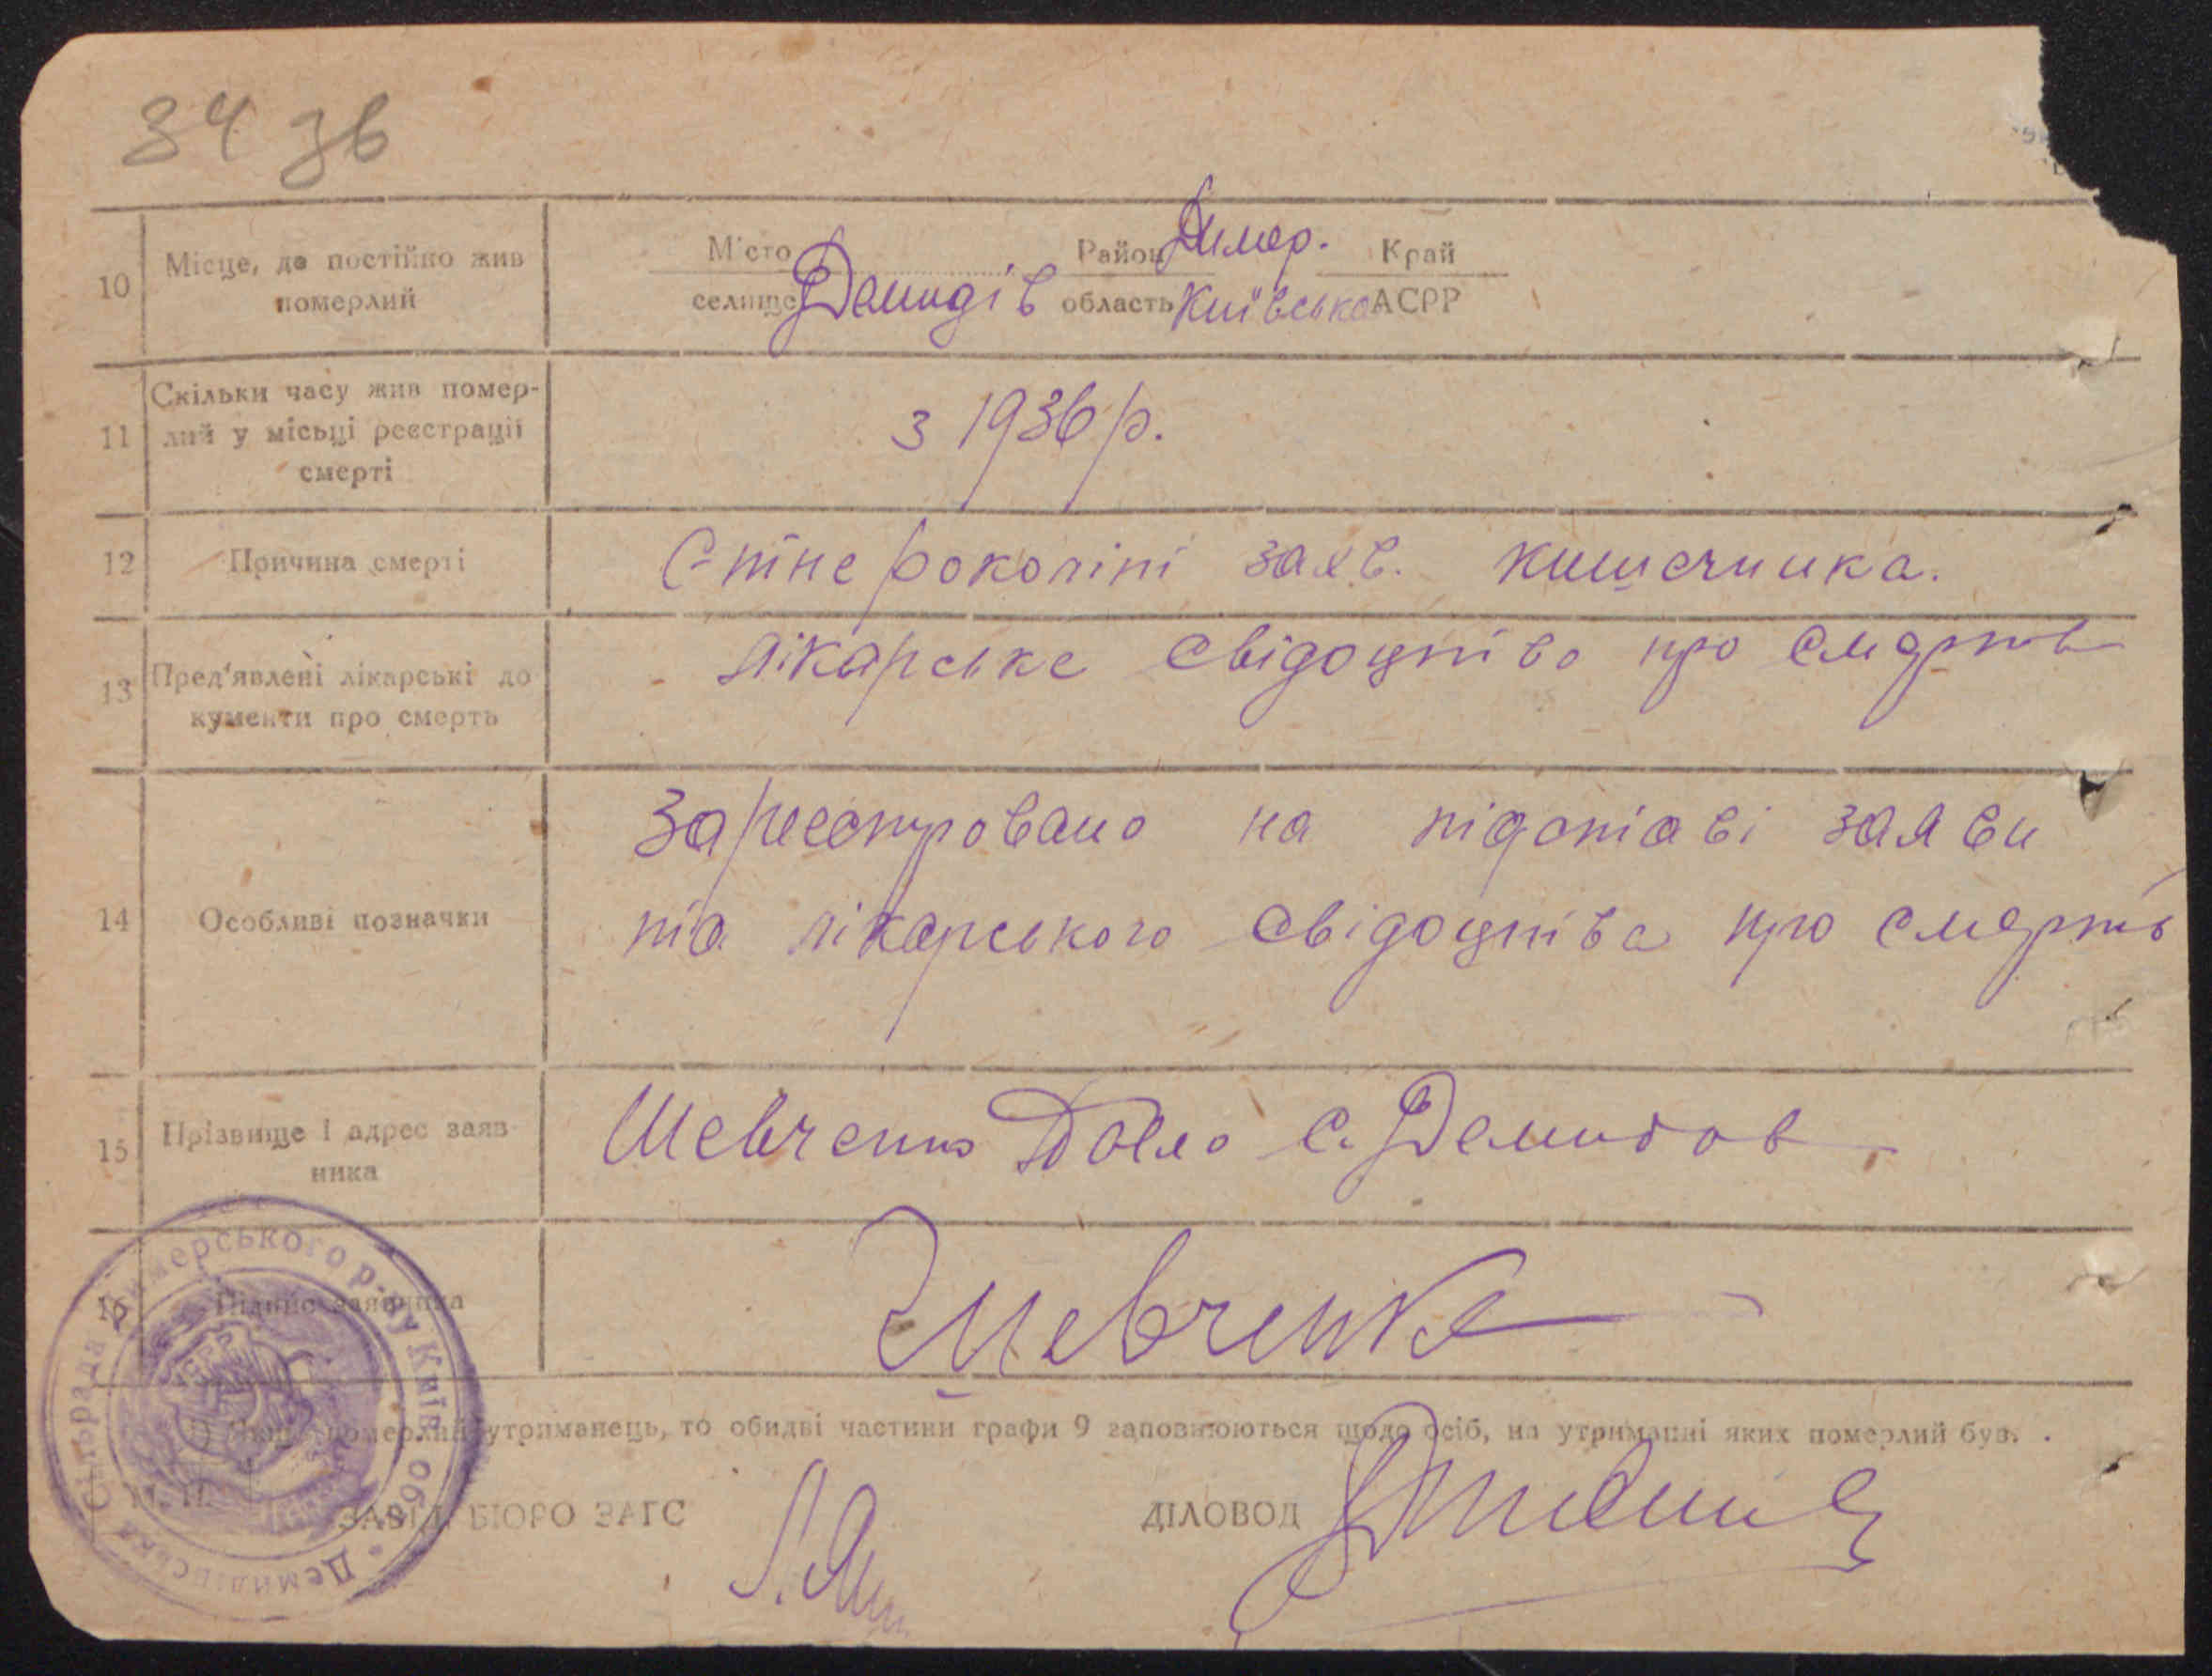 34 зв
10 Місце, де постійно жив
померлий
Місто
селище Демидів
Район Димер.
область Київська
Край
АСРР
11 Скільки часу жив помер-
лий у місьці реєстрації
смерті
з 1936 р.
12 Причина смерті
Ентероколіт захв. кишечника.
13 Пред'явлені лікарські до
кументи про смерть
лікарське свідоцтво про смерть
14 Особливі позначки
Зареестровано на підставі заяви
та лікарського свідоцтва про смерть
15 Прізвище і адрес заяв-
ника
Шевченко с. Демидов
16 Підпис заявника
Шевченко
) Якщо померлий утриманець, то обидві частини графи 9 заповнюються щодо осіб, на утриманні яких померлий був.
М. П.
ЗАВІД. БЮРО ЗАГС
ДІЛОВОД
Демидівська Сільрада Димерського р-ну Київ. обл.
УСРР